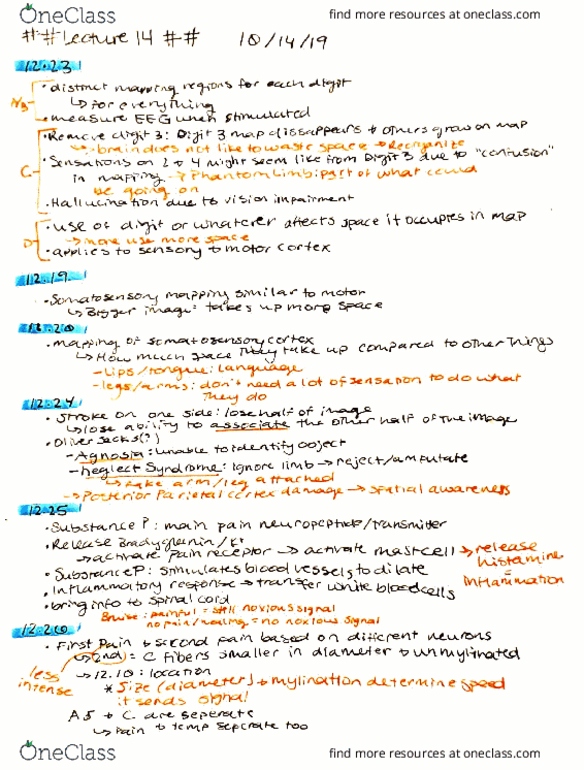 OneClass
find more resources at oneclass.com
##Lecture 14 ## 10/14/19
12.23
A/B
• distinct mapping regions for each digit
↳ for everything
• measure EEG when stimulated
C
• Remove digit 3: Digit 3 map dissappears + others grow on map
↳ brain does not like to waste space → Reorganize
• Sensations on 2 + 4 might seem like from Digit 3 due to "confusion"
in mapping → Phantom limb: part of what could
be going on
• Hallucination due to vision impairment
D
• use of digit or whatever affects space it occupies in map
↳ more use more space
• applies to sensory + motor cortex
12.19
• Somatosensory mapping similar to motor
↳ Bigger image: takes up more space
12.20
• mapping of somatosensory cortex
↳ How much space they take up compared to other things
- Lips/tongue: language
- legs/arms: don't need a lot of sensation to do what
they do
12.24
• Stroke on one side: lose half of image
↳ lose ability to associate the other half of the image
• Oliver Sacks(?)
- Agnosia: unable to identify object
- Neglect Syndrome: Ignore limb → reject/amputate
↳ fake arm/leg attached
→ Posterior Parietal cortex damage → spatial awareness
12.25
• Substance P: main pain neuropeptide/transmitter
• Release Bradykinin/K+
↳ activate pain receptor → activate mast cell → release
histamine
=
inflammation
• Substance P: stimulates blood vessels to dilate
• Inflammatory response → transfer white blood cells
• bring info to spinal cord
Bruise: painful = still noxious signal
no pain/healing = no noxious signal
12.26
• First Pain + second pain based on different neurons
↳ 2nd = C fibers smaller in diameter + unmylinated
less
intense
→ 12.10: location
* Size (diameter) + mylination determine speed
it sends signal
Aδ + C are seperate
↳ Pain + temp seperate too
OneClass
find more resources at oneclass.com